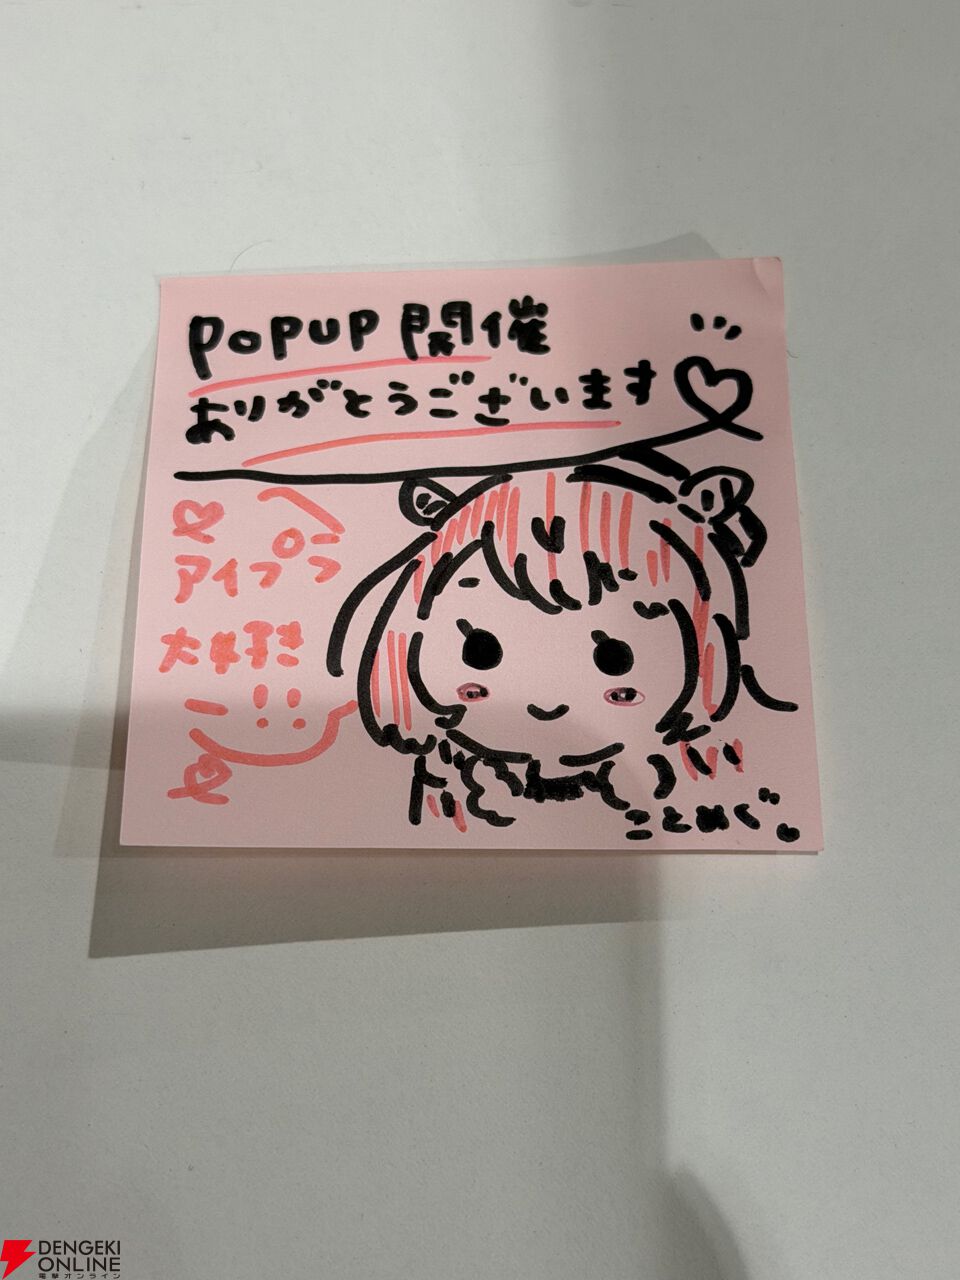 POPUP 開催
ありがとうございます
アイプラ
大好き
!!
ことめぐ
DENGEKI
ONLINE
電撃オンライン